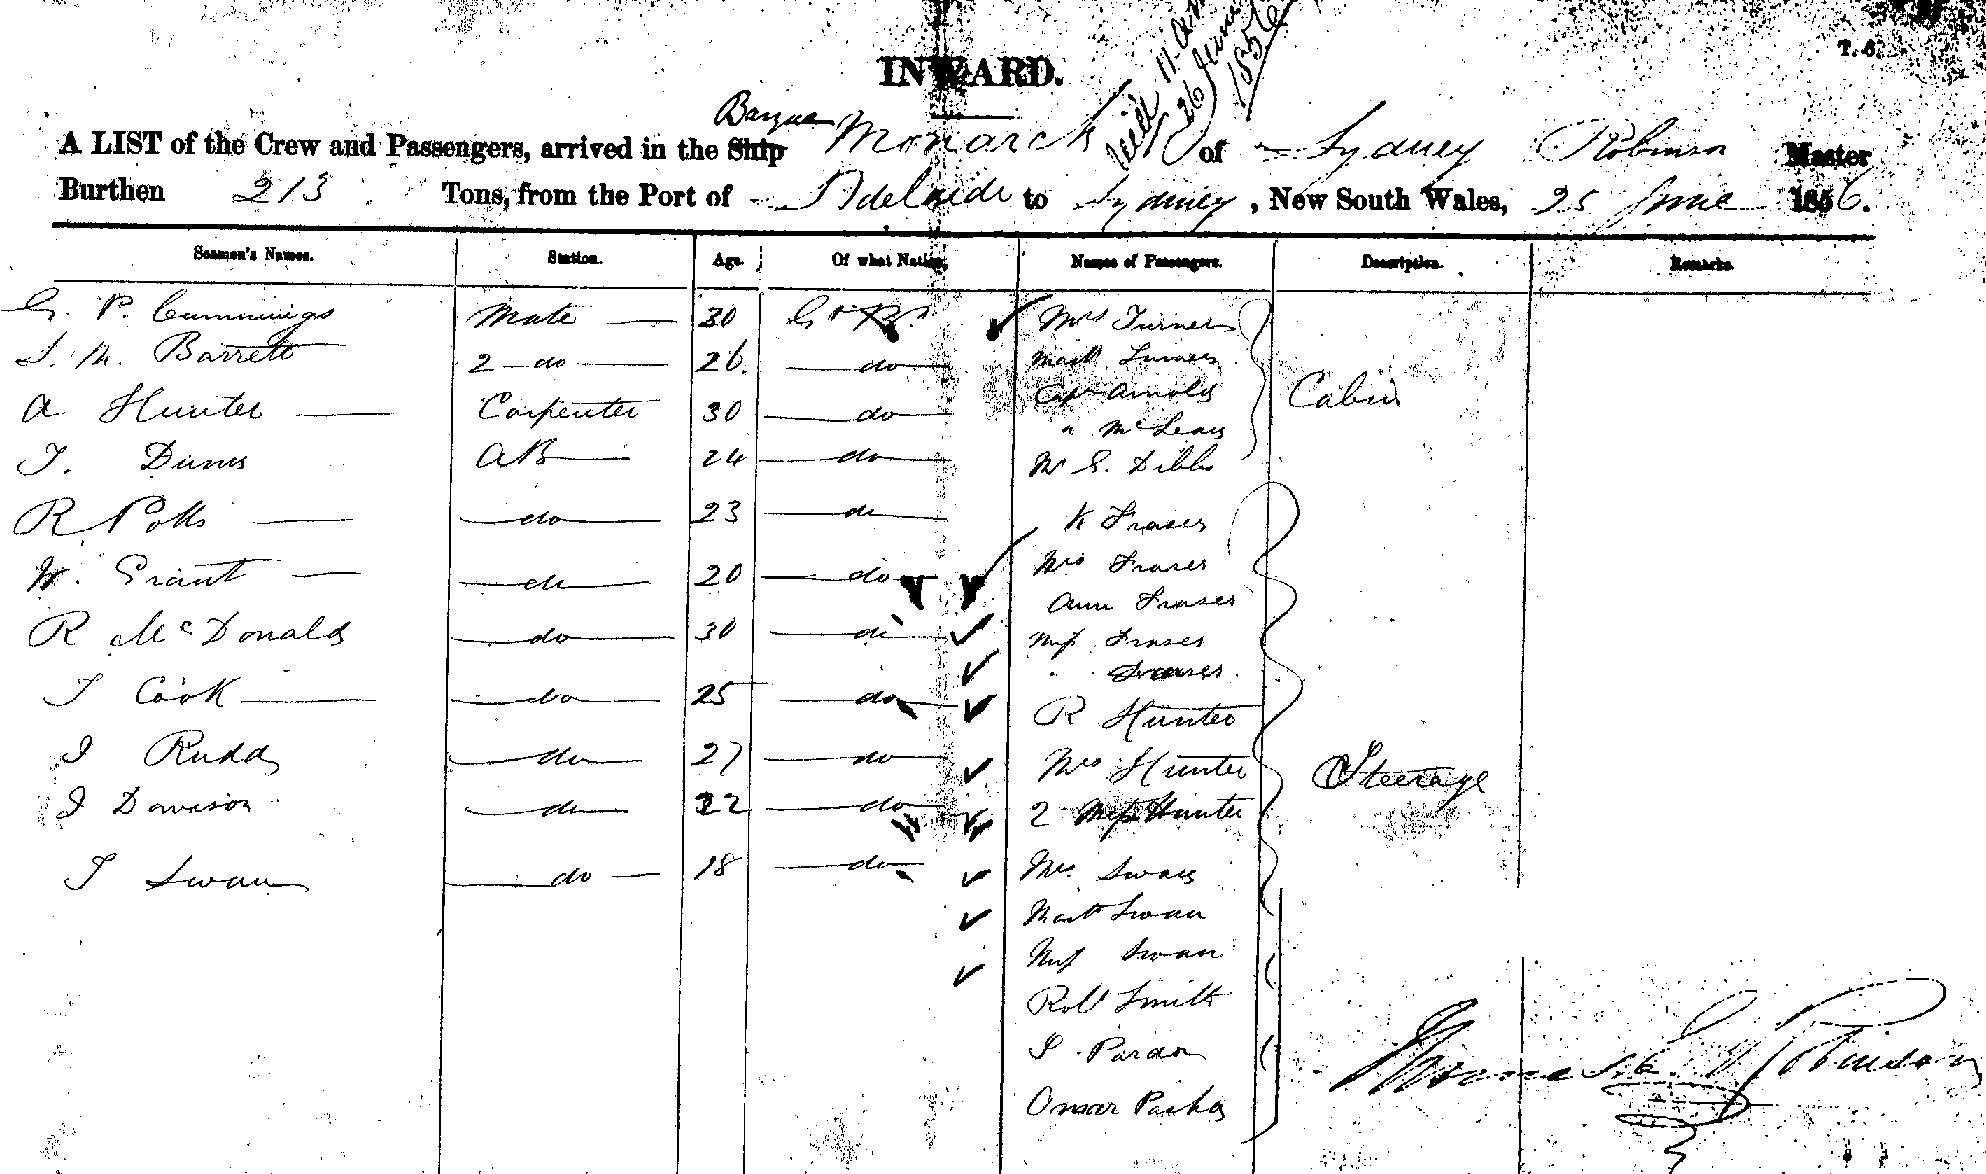 T. 6
26 June
1856
INWARD.
Barque
A LIST of the Crew and Passengers, arrived in the Ship Monarch of Sydney Robinson Master
Burthen 213 Tons, from the Port of Adelaide to Sydney, New South Wales, 25 June 1856.
Seamen's Names. Station. Age. Of what Nation. Names of Passengers. Description. Remarks.
G. P. Cummings Mate 30 Gt Br. Mrs Turner
J. M. Barrett 2 do 26. do Mast Turner
A Hunter Carpenter 30 do Capt Arnold Cabin
" McLean
T. AB 24 do Mr S. Dibbs
R Potts do 23 do K Fraser
W. Grant do 20 do Mrs Fraser
Ann Fraser
R McDonald do 30 do Miss Fraser
" Fraser
J Cook do 25 do R Hunter
J Rudd do 27 do Mrs Hunter Steerage
J Davison do 22 do 2 Miss Hunter
J Swan do 18 do Mrs Swan
Mast Swan
Miss Swan
Robt Smith
J Pardon
Omar Pacha
Robinson